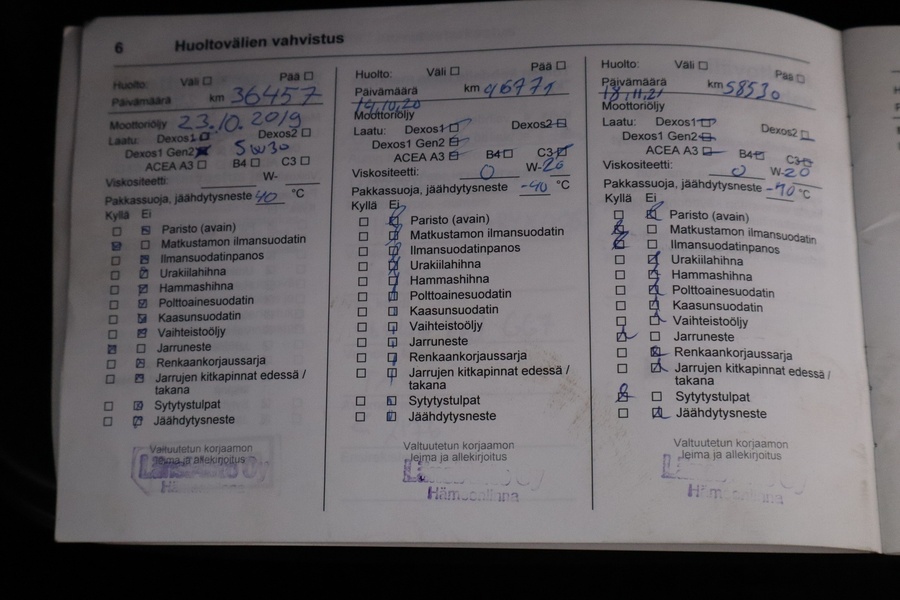 6 Huoltovälien vahvistus
Huolto: Väli Pää
Päivämäärä km 36457
23.10.2019
Moottoriöljy
Laatu: Dexos1 Dexos2
Dexos1 Gen2 5w30
ACEA A3 B4 C3
Viskositeetti: W-
Pakkassuoja, jäähdytysneste 40 °C
Kyllä Ei
Paristo (avain)
Matkustamon ilmansuodatin
Ilmansuodatinpanos
Urakiilahihna
Hammashihna
Polttoainesuodatin
Kaasunsuodatin
Vaihteistoöljy
Jarruneste
Renkaankorjaussarja
Jarrujen kitkapinnat edessä /
takana
Sytytystulpat
Jäähdytysneste
Valtuutetun korjaamon
leima ja allekirjoitus
Huolto: Väli Pää
Päivämäärä km 46771
14.10.20
Moottoriöljy
Laatu: Dexos1 Dexos2
Dexos1 Gen2
ACEA A3 B4 C3
Viskositeetti: 0 W-20
Pakkassuoja, jäähdytysneste -40 °C
Kyllä Ei
Paristo (avain)
Matkustamon ilmansuodatin
Ilmansuodatinpanos
Urakiilahihna
Hammashihna
Polttoainesuodatin
Kaasunsuodatin
Vaihteistoöljy
Jarruneste
Renkaankorjaussarja
Jarrujen kitkapinnat edessä /
takana
Sytytystulpat
Jäähdytysneste
Valtuutetun korjaamon
leima ja allekirjoitus
Hämeenlinna
Huolto: Väli Pää
Päivämäärä km 58530
18.11.21
Moottoriöljy
Laatu: Dexos1 Dexos2
Dexos1 Gen2
ACEA A3 B4 C3
Viskositeetti: 0 W-20
Pakkassuoja, jäähdytysneste -40 °C
Kyllä Ei
Paristo (avain)
Matkustamon ilmansuodatin
Ilmansuodatinpanos
Urakiilahihna
Hammashihna
Polttoainesuodatin
Kaasunsuodatin
Vaihteistoöljy
Jarruneste
Renkaankorjaussarja
Jarrujen kitkapinnat edessä /
takana
Sytytystulpat
Jäähdytysneste
Valtuutetun korjaamon
leima ja allekirjoitus